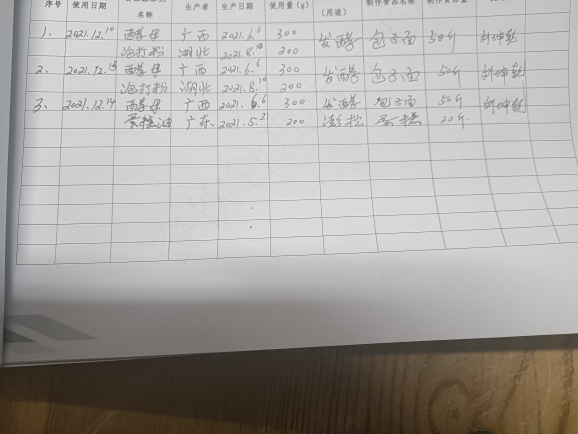 序号 使用日期 名称 生产者 生产日期 使用量(g) (用途) 制作食品名称
1、 2021.12.10 酵母 广西 2021.6.6 300 发酵 包子面 50斤
泡打粉 湖北 2021.8.10 200
2、 2021.12.13 酵母 广西 2021.6.6 300 发酵 包子面 50斤
泡打粉 湖北 2021.8.10 200
3、 2021.12.14 酵母 广西 2021.6.6 300 发酵 包子面 50斤
蛋糕油 广东 2021.5.21 200 蛋糕 20斤